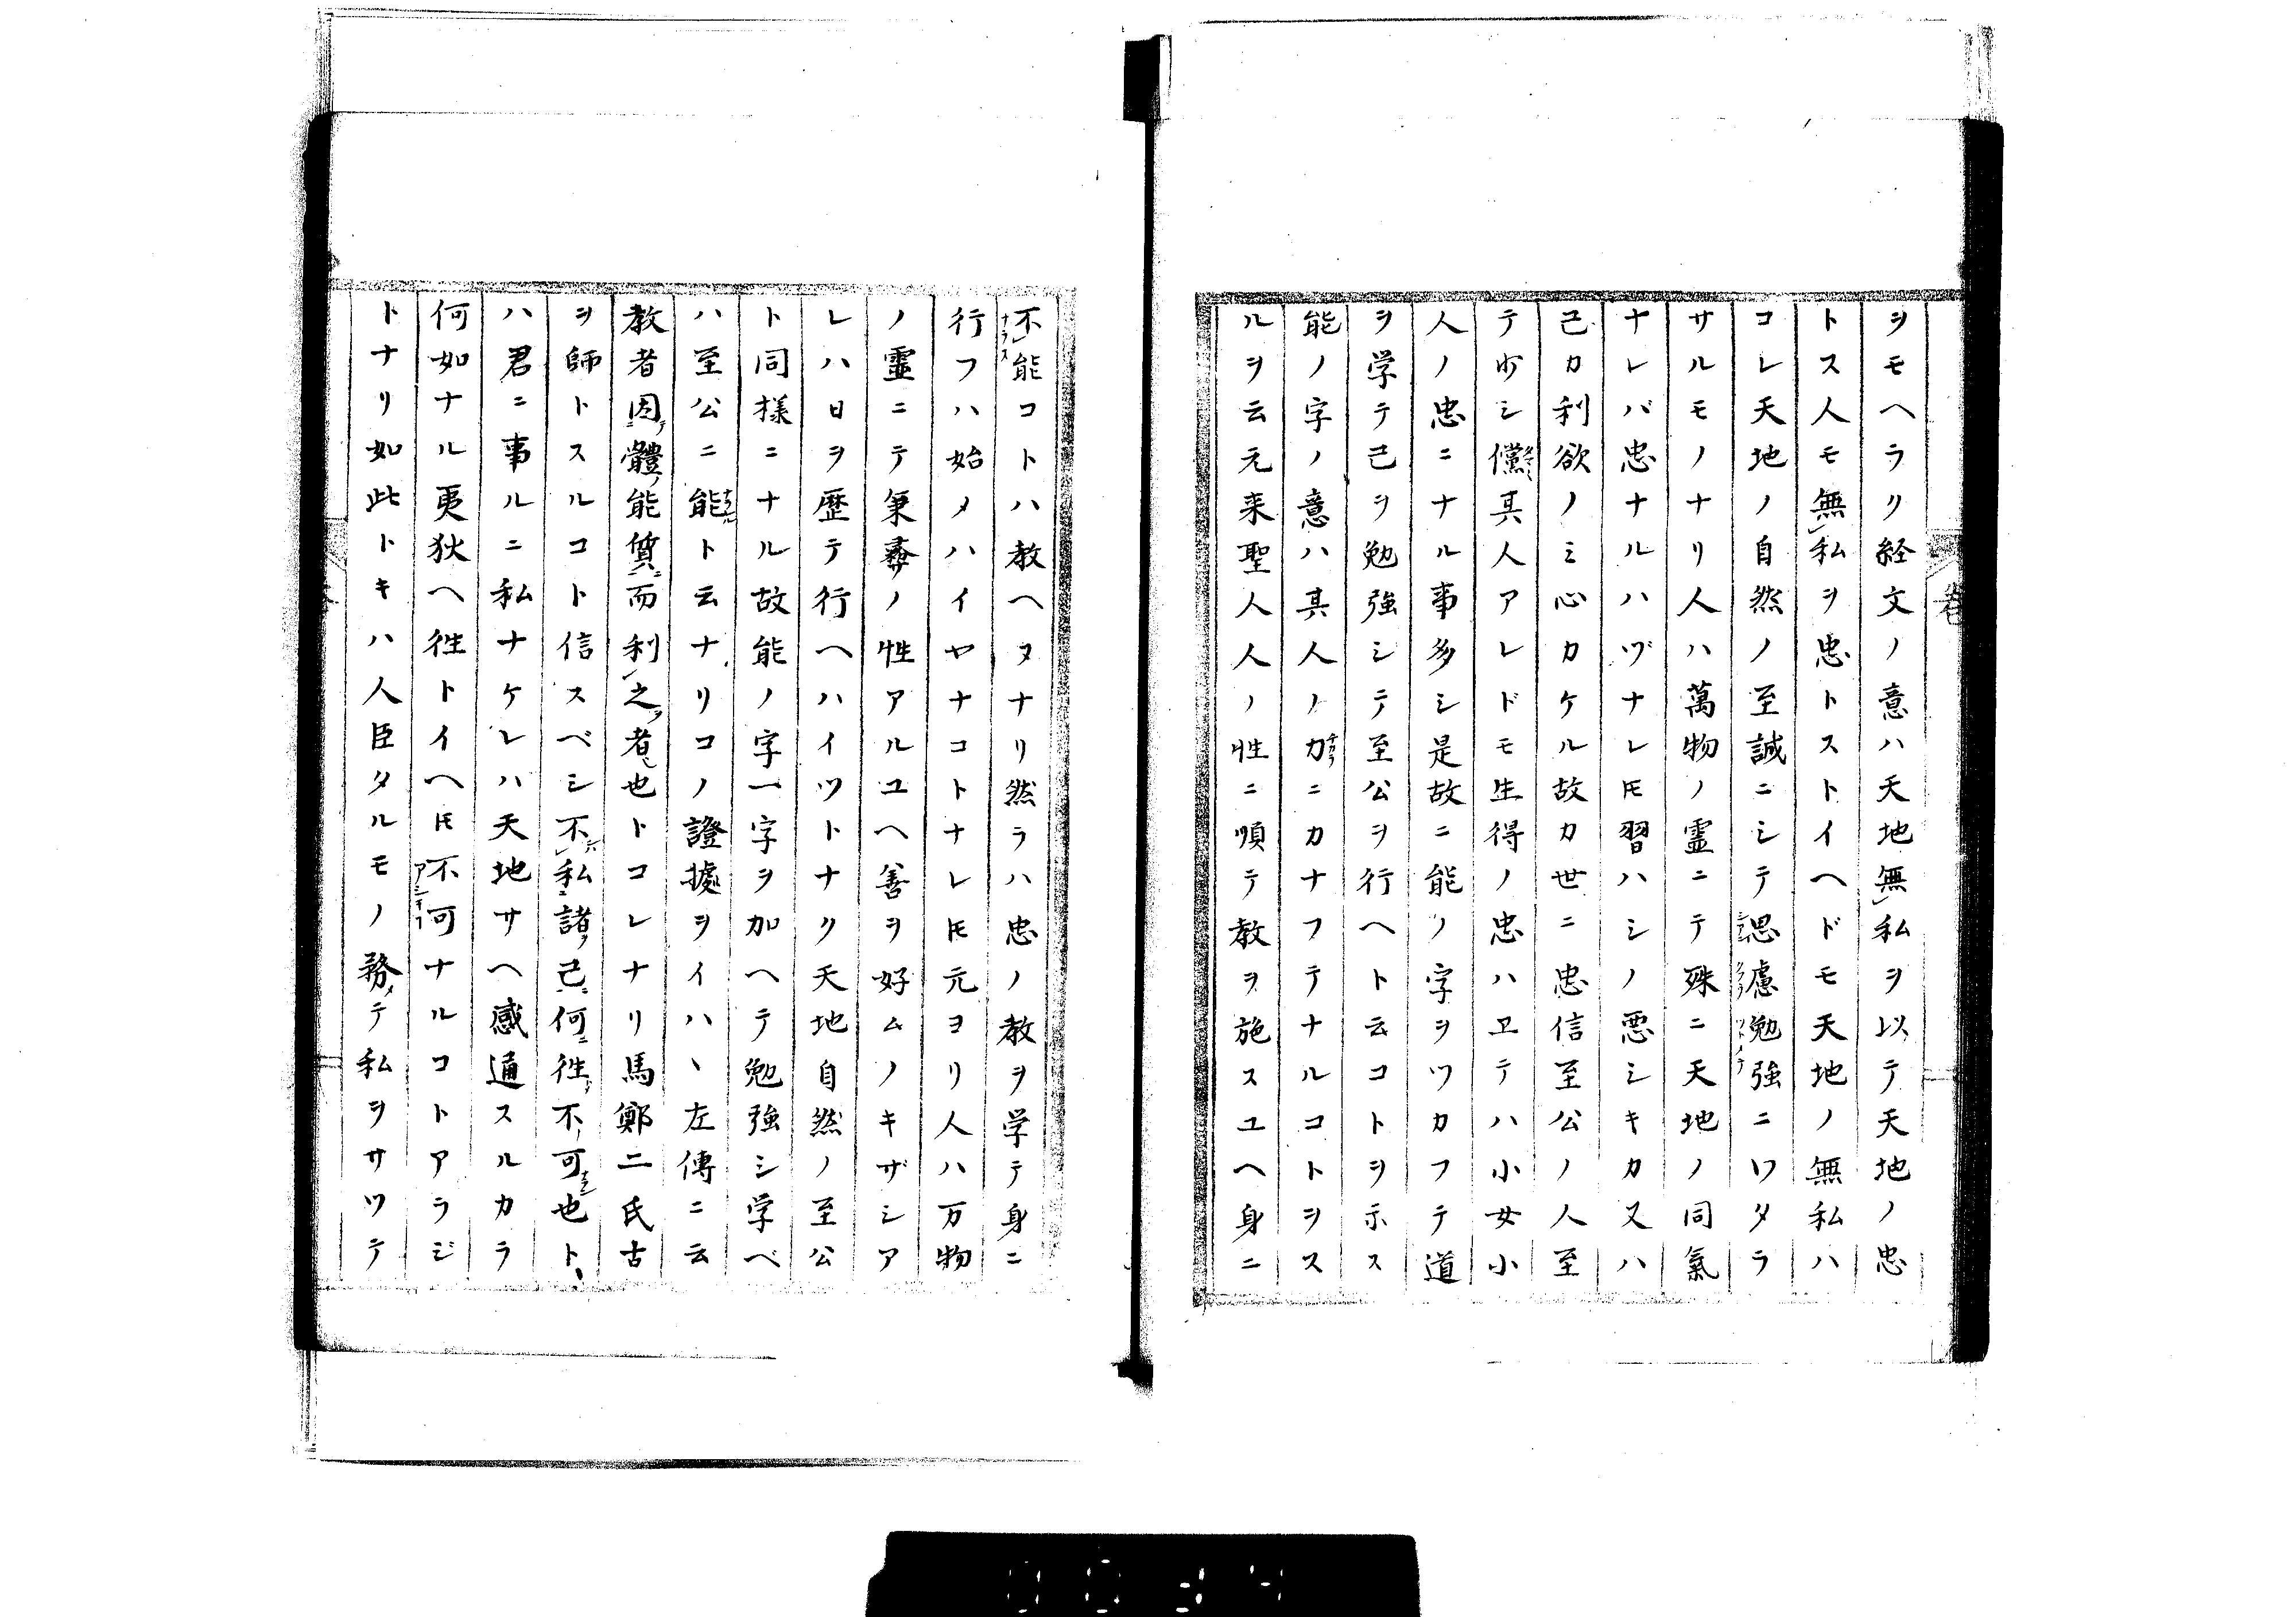 ヲモヘラク経文ノ意ハ天地無私ヲ以テ天地ノ忠
トス人モ無私ヲ忠トストイヘドモ天地ノ無私ハ
コレ天地ノ自然ノ至誠ニシテ思慮勉強ニワタラ
サルモノナリ人ハ萬物ノ霊ニテ殊ニ天地ノ同氣
ナレバ忠ナルハヅナレ𪜈習ハシノ悪シキカ又ハ
己カ利欲ノミ心カケル故カ世ニ忠信至公ノ人至
テ少シ儻其人アレドモ生得ノ忠ハヱテハ小女小
人ノ忠ニナル事多シ是故ニ能ノ字ヲツカフテ道
ヲ学テ己ヲ勉強シテ至公ヲ行ヘト云コトヲ示ス
能ノ字ノ意ハ其人ノ力ニカナフテナルコトヲス
ルヲ云元来聖人人ノ性ニ順テ教ヲ施スユヘ身ニ
不能コトハ教ヘヌナリ然ラハ忠ノ教ヲ学テ身ニ
行フハ始メハイヤナコトナレ𪜈元ヨリ人ハ万物
ノ霊ニテ秉彝ノ性アルユヘ善ヲ好ムノキザシア
レハ日ヲ歴テ行ヘハイツトナク天地自然ノ至公
ト同様ニナル故能ノ字一字ヲ加ヘテ勉強シ学ベ
ハ至公ニ能ト云ナリコノ證據ヲイハヽ左傳ニ云
教者因體能質而利之者也トコレナリ馬鄭二氏古
ヲ師トスルコト信スベシ不私諸己何往不可也ト
ハ君ニ事ルニ私ナケレハ天地サヘ感通スルカラ
何如ナル夷狄ヘ往トイヘ𪜈不可ナルコトアラジ
トナリ如此トキハ人臣タルモノ務テ私ヲサツテ